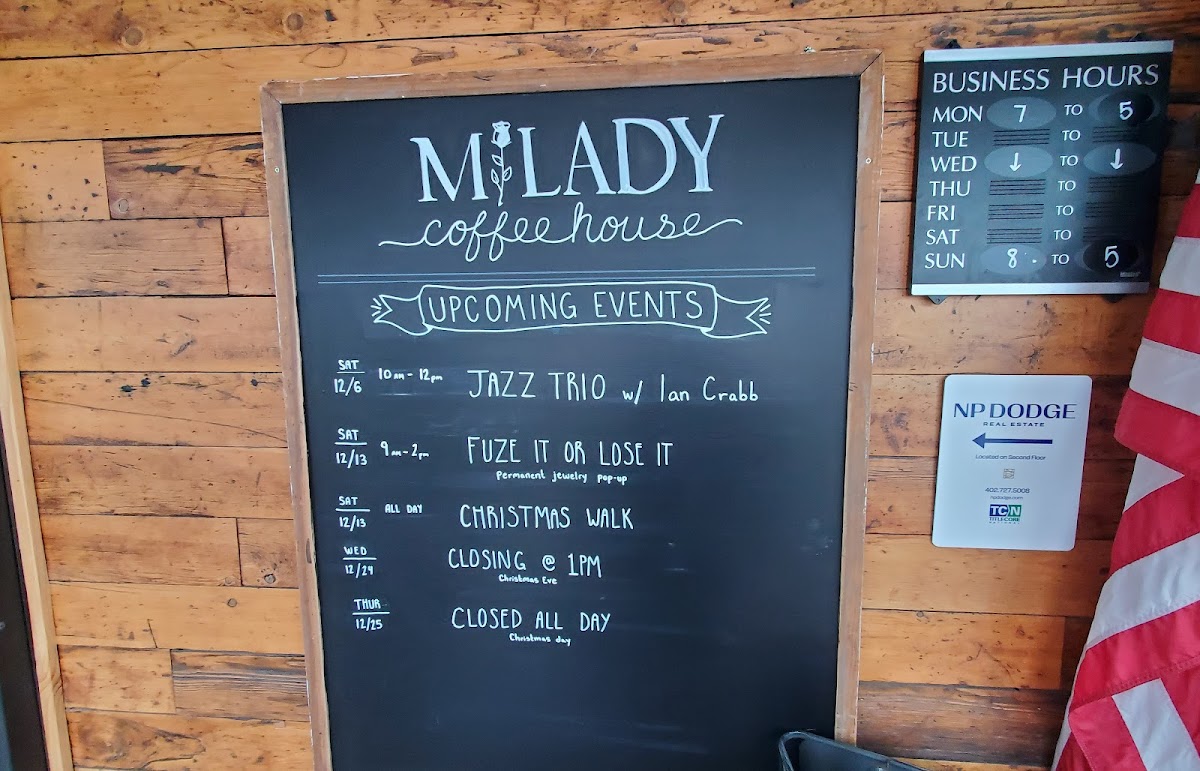 MILADY
coffee house
UPCOMING EVENTS
SAT
12/6 10 AM - 12 PM JAZZ TRIO w/ Ian Crabb
SAT
12/13 9 AM - 2 PM FUZE IT OR LOSE IT
Permanent jewelry pop-up
SAT
12/13 ALL DAY CHRISTMAS WALK
WED
12/24 CLOSING @ 1PM
Christmas Eve
THUR
12/25 CLOSED ALL DAY
Christmas day
BUSINESS HOURS
MON 7 TO 5
TUE TO
WED ↓ TO ↓
THU TO
FRI TO
SAT TO
SUN 8 TO 5
NP DODGE
REAL ESTATE
Located on Second Floor
402.727.5008
npdodge.com
TCN
TITLECORE
NATIONAL